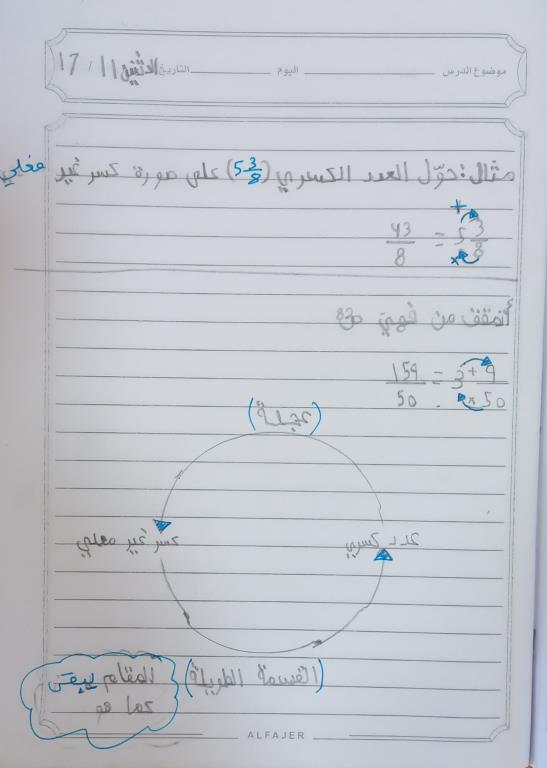 موضوع الدرس اليوم التاريخ الاثنين 11 / 17
مثال: حوّل العدد الكسري (5 3/8) على صورة كسر غير فعلي
43/8 = 5 3/8
+
×
أتحقق من فهمي
159/50 = 3 + 9/50
×
(عجلة)
عدد كسري
كسر غير فعلي
(القسمة الطويلة)
المقام يبقى
كما هو
ALFAJER